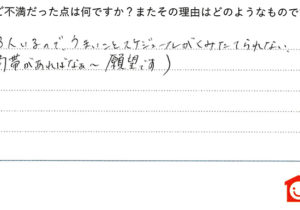 ご不満だった点は何ですか?またその理由はどのようなもので
3人いるので、うまいことスケジュールがくみたてられない
約帯があればなぁ〜(願望です)